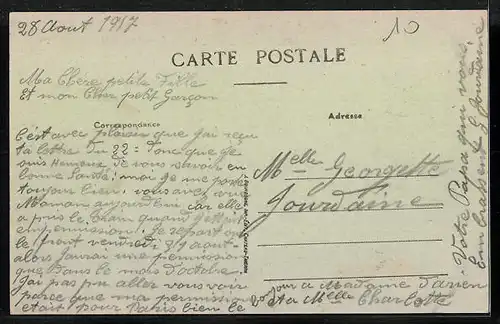 28 Aout 1917
10
CARTE POSTALE
Ma Chere petite Fille
Et mon Cher petit Garçon
Correspondance
Adresse
C'est avec plaisir que j'ai reçu
ta lettre du 22: donc que je
suis Heureux de vous savoir en
bonne Santé: moi je me porte
toujour bien. vous avez vu
Maman aujourd'hui car elle
a pris le train quand j'etait
en permission. Je repart sur
le front vendredi 31 aout
alors j'aurai une permission
que dans le mois d'octobre.
J'ai pas pu aller vous voir
parce que ma permission
etait pour Paris bien le
Melle Georgette
Jourdaine
Bonjour a Madame Darien
et a Melle Charlotte
Votre Papa qui vous
Embrassent G Jourdaine